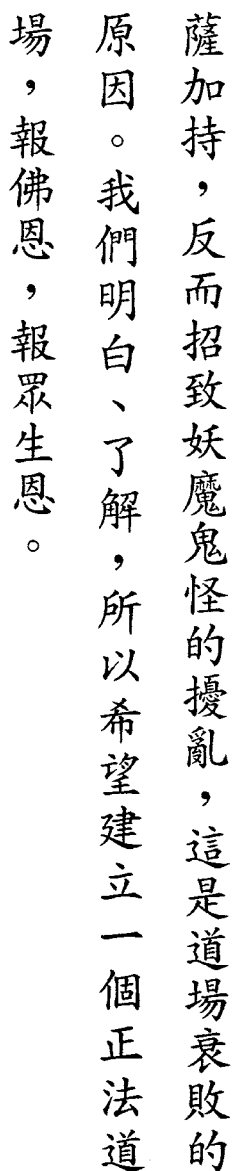 薩加持，反而招致妖魔鬼怪的擾亂，這是道場衰敗的
原因。我們明白、了解，所以希望建立一個正法道
場，報佛恩，報眾生恩。